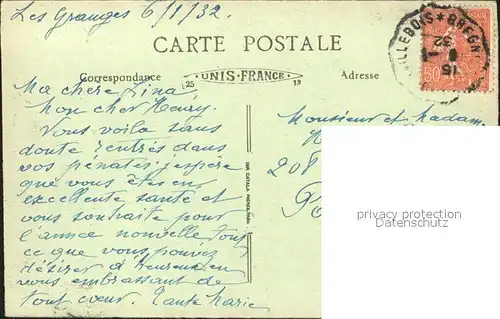 Les Granges 6/1/32.
CARTE POSTALE
Correspondance
25 UNIS-FRANCE 19
Adresse
Ma chère Lina,
mon cher Henry.
Vous voila sans
doute rentrés dans
vos pénates j'espère
que vous êtes en
excellente santé et
vous souhaite pour
l'année nouvelle tout
ce que vous pouvez
désirer d'heureux en
vous embrassant de
tout cœur. Tante Marie
Monsieur et Madam
208
privacy protection
Datenschutz
50
15
32